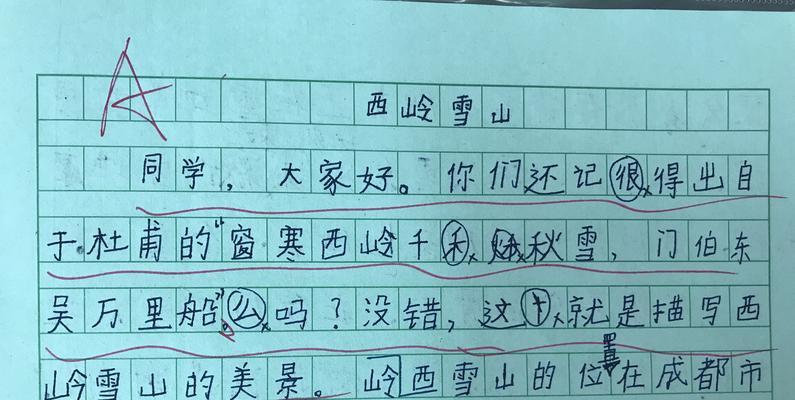 A
西岭雪山
同学，大家好。你们还记很得出自
于杜甫的“窗寒西岭千禾秋雪，门伯东
吴万里船”么吗？没错，这个就是描写西
岭雪山的美景。岭西雪山的位置在成都市